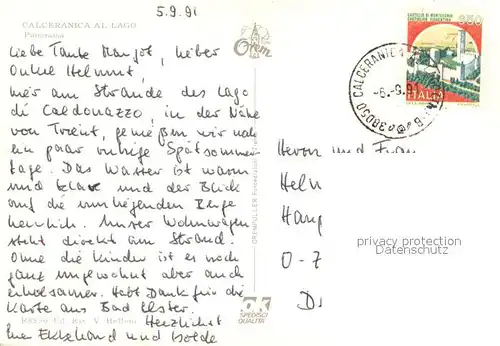 5.9.91
CALCERANICA AL LAGO
Panorama
Liebe Tante Margot, lieber
Onkel Helmut,
hier am Strande des Lago
di Caldonazzo, in der Nähe
von Trient, genießen wir noch
ein paar ruhige Spätsommer-
tage. Das Wasser ist warm
und klar und der Blick
auf die umliegenden Berge
herrlich. Unser Wohnwagen
steht direkt am Strand.
Ohne die Kinder ist es noch
ganz ungewohnt aber auch
erholsamer. Habt Dank für die
Karte aus Bad Elster.
Herzlichst
Eure Ekkehard und Isolde
Orem
OK
SPEDISCI
QUALITÀ
350
ITALIA
38050 CALCERANICA
-6.-9.91
Herrn und Frau
Helm
Hang
O-7
D
privacy protection
Datenschutz